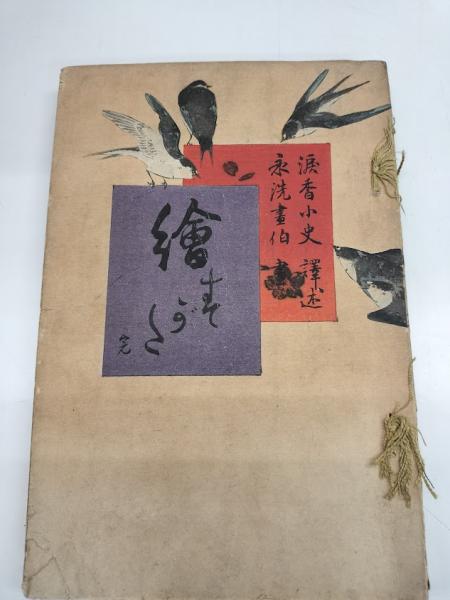 淚香小史 譯述
永洗畫伯
繪すがた
完